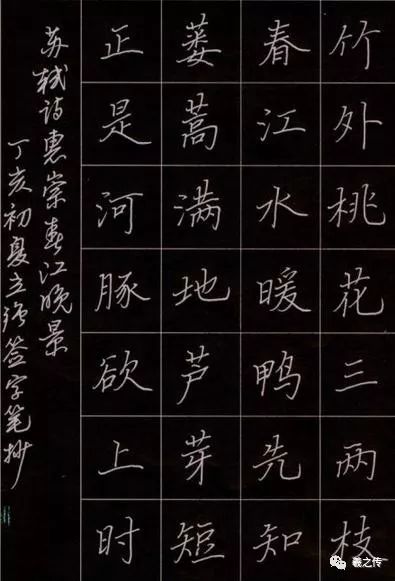 竹外桃花三两枝
春江水暖鸭先知
蒌蒿满地芦芽短
正是河豚欲上时
苏轼诗惠崇春江晚景
丁亥初夏立強签字笔抄
羲之传